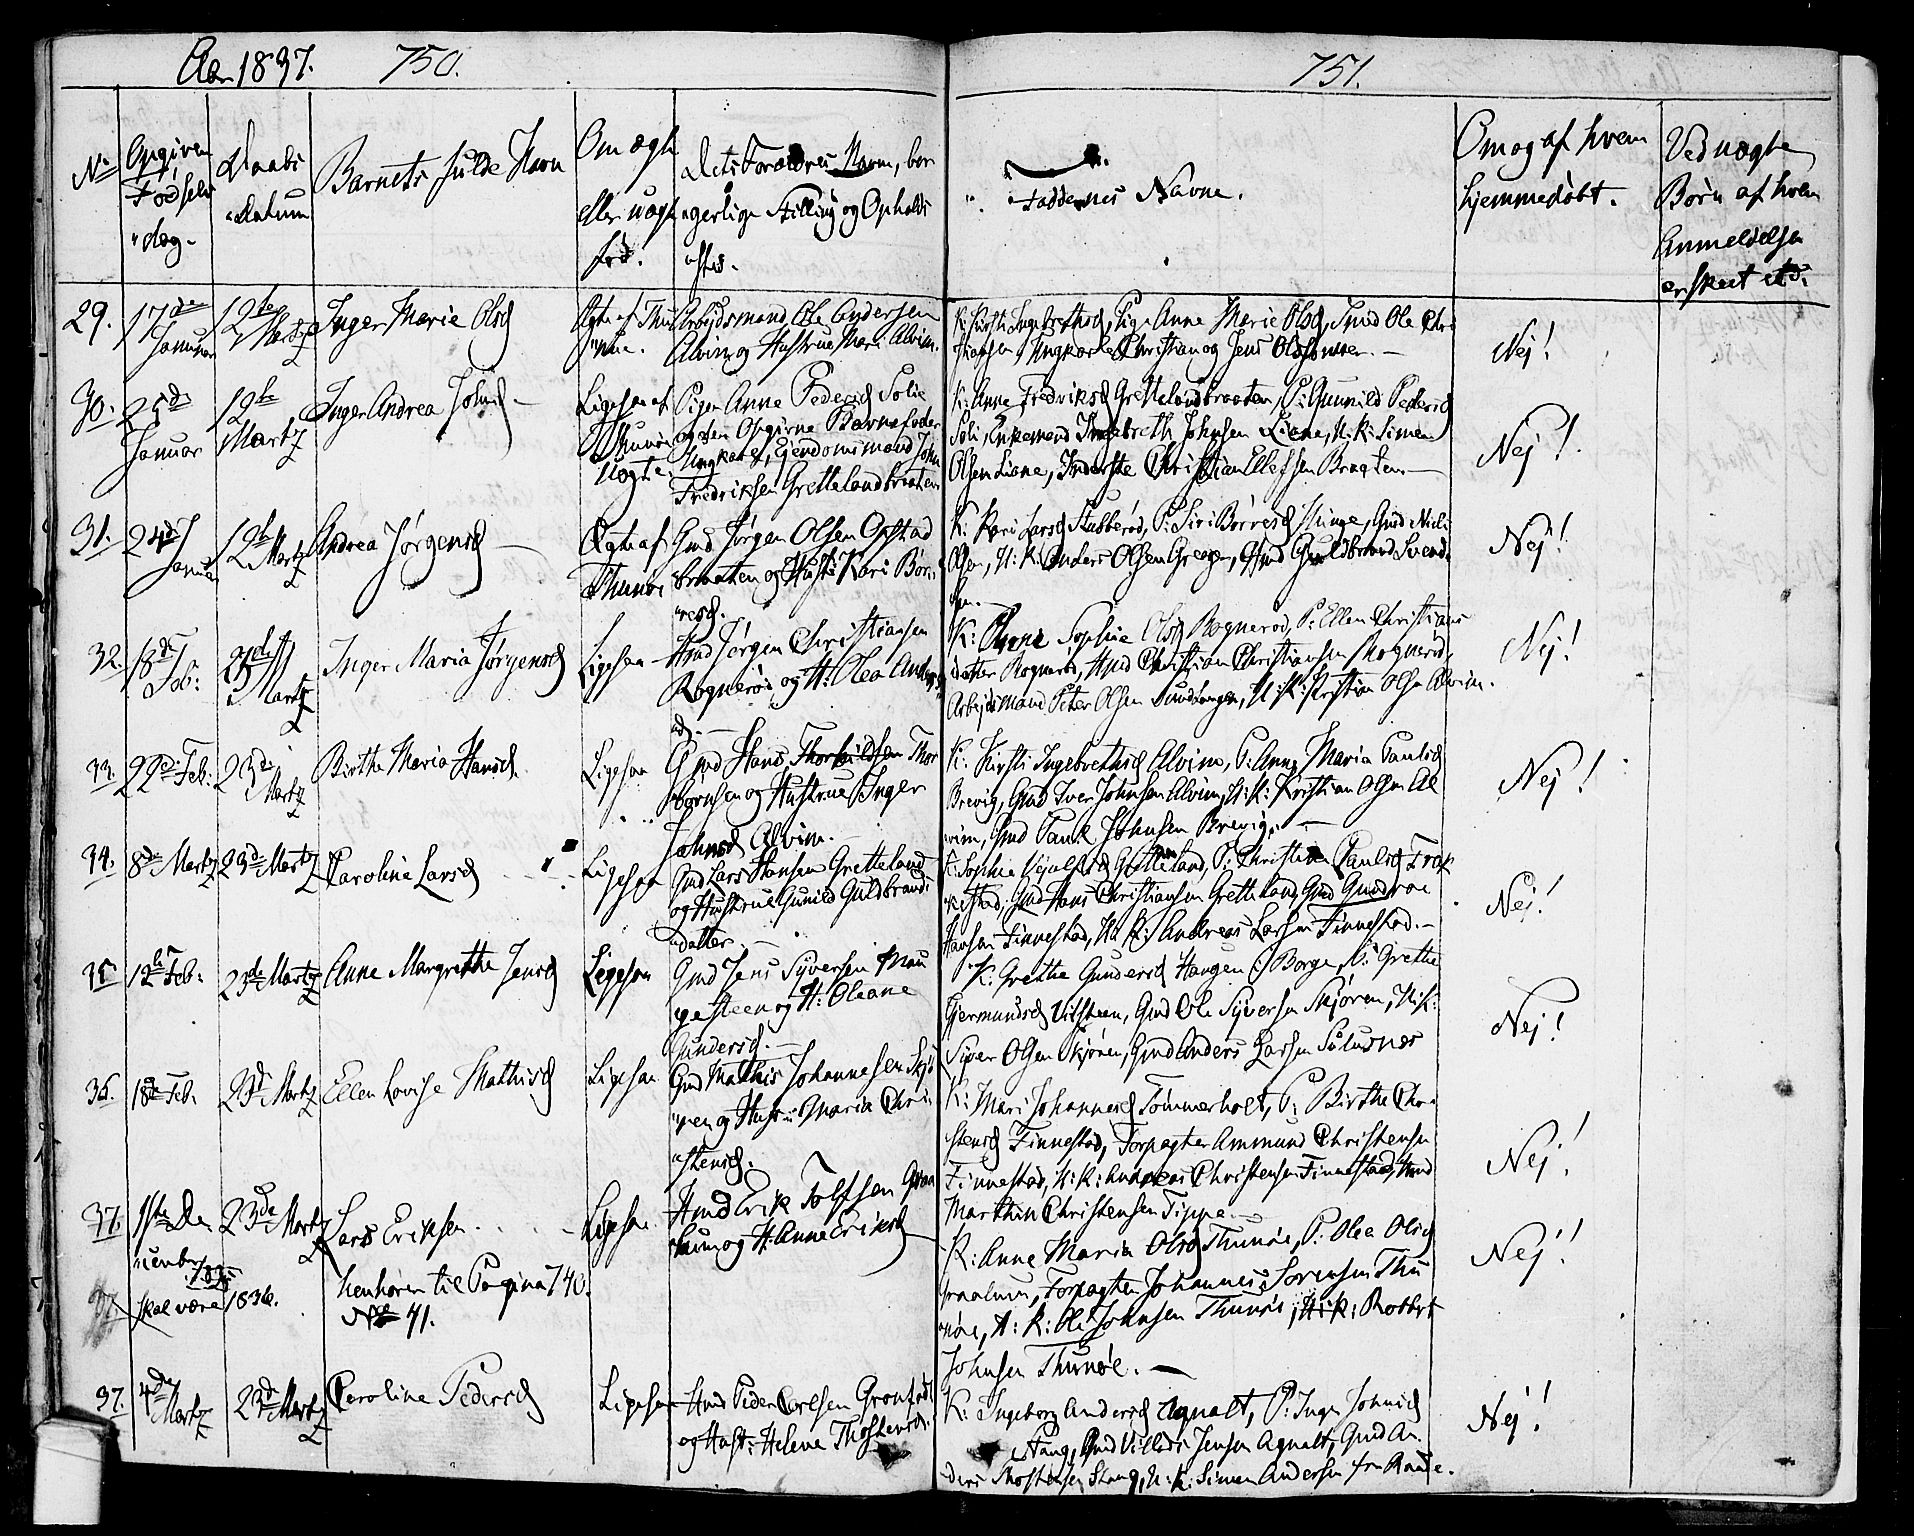 Aar 1837. 750.
751.
No
Opgiven Fødsels dag.
Daabs Datum
Barnets fulde Navn
Om ægte eller uægte fød.
Dets Forældres Navn, borgerlige Stilling og Opholds sted.
Faddernes Navne.
Om og af hvem hjemmedøbt.
Ved uægte Børn af hvem Anmeldelsen er skeet etc.
29. 17de Januar 12te Martz Inger Marie Olsd
Arbejdsmand Ole Andersen
Alvim og Hustrue Mari Alvim.
K: Kirsti Ingebrethsd, Pige Anne Marie Olsd, Gmd Ole Chri
stiansen, Ungkarle Christian og Jens Olssønner. —
Nej!
30. 25de Januar 12te Martz Inger Andrea Johnsd —
Ligesaa af Uægte
Pigen Anne Pedersd Solie
og den Opgivne Barnefader
Ungkarl, Ejendomsmand John
Fredriksen Grettelandbraaten
K: Anne Fredriksd Grettelandbraaten, P: Gunnild Pedersd
Soli, Enkemand Ingebreth Johnsen Liane, U: K: Simen
Olsen Liane, Inderste Christian Ellefsen Braaten —
Nej!
31. 24de Januar 12te Martz Andrea Jørgensd —
Ægte af Thunøe
Gmd Jørgen Olsen Opstad
braaten og Hust: Kari Bør
resd.
K: Kari Larsd Stubberød, P: Siri Børresd Thunøe, Gmd Niels
Olsen, U: K: Anders Olsen Greager, Hmd Guldbrand Svend
sen.
Nej!
32. 18de Feb: 23de Martz Inger Maria Jørgensd
Ligesaa
Hmd Jørgen Christiansen
Rognerød og H: Olea Anders
d. —
K: Sophie Olsd Rognerød, P: Ellen Christians
datter Rognerød, Hmd Christian Christiansen Rognerød,
Arbejdsmand Peter Olsen Sundhaugen, U: K: Kristian Olsen Alvim.
Nej!
33. 22de Feb: 23de Martz Birthe Maria Hansd
Ligesaa
Gmd Hans Thorkildsen Thor
bjørnsen og Hustrue Inger
Johnsd Alvim.
K: Kirsti Ingebrethsd Alvim, P: Anne Maria Paulsd
Brevig, Gmd Iver Johnsen Alvim, U: K: Kristian Olsen Al
vim, Gmd Paul Johnsen Brevig. —
Nej!
34. 8de Martz 23de Martz Caroline Larsd
Ligesaa
Gmd Lars Hansen Gretteland
og Hustrue Gunild Guldbrands
datter. —
K: Sophie Gretteland, P: Christine Paulsd Trok
kestad, Gmd Hans Christiansen Gretteland, Gmd Gundroe
Hansen Finnestad, U: K: Andreas Larsen Finnestad. —
Nej!
35 12te Feb: 23de Martz Anne Margrethe Jensd
Ligesaa
Gmd Jens Syversen Mau
gesteen og H: Oleane
Gundersd. —
K: Grethe Gundersd Haugen i Borge, P: Grethe
Gjermundsd Vilsteen, Gmd Ole Syversen Skjøren, U: K:
Syver Olsen Skjøren, Gmd Anders Larsen
Nej!
36. 18de Feb. 23de Martz Ellen Lovise Mathisd
Ligesaa
Gmd Mathis Johannesen Skjø
ren og Hustrue Maria Chri
stensd.
K: Mari Johannesd Tømmerholt, P: Birthe Chri
stensd Finnestad, Forpagter Ammund Christensen
Finnestad, U: K: Andreas Christensen Finnestad, Hmd
Marthin Christensen Tippe. —
Nej!
37. 1ste December 23de Martz Lars Eriksen
Ligesaa
Hmd Erik Tolfsen Graa
lum og H: Anne Eriksd —
K: Anne Maria Olsd Thunøe, P: Olea Olsd
Graalum, Forpagter Johannes Sørensen Thu
nøe, U: K: Ole Johnsen Thunøe, U: K: Robbert
Johnsen Thunøe. —
Nej!
skal være 1836.
henhører til Pagina 740.
No 41.
37. 4de Martz 23de Martz Caroline Pedersd
Ligesaa
Hmd Peder Carlsen Grønstød
og Hust: Helene Thostensd.
K: Ingeborg Andersd Agnalt, P: Inger Johnsd
Stang, Gmd Villads Jensen Agnalt, Gmd An
ders Thostensen Stang, U: K: Simen Andersen fra Raade.
Nej!